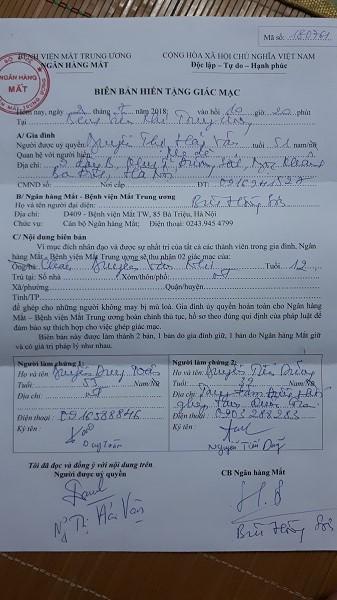 Mã số: 180761
BỆNH VIỆN MẮT TRUNG ƯƠNG
NGÂN HÀNG MẮT
CỘNG HÒA XÃ HỘI CHỦ NGHĨA VIỆT NAM
Độc lập – Tự do – Hạnh phúc
NGÂN HÀNG
MẮT
BIÊN BẢN HIẾN TẶNG GIÁC MẠC
Hôm nay, ngày tháng 2018; vào hồi giờ 20 phút
Tại Bệnh viện Mắt Trung ương
A/ Gia đình
Người được uỷ quyền Nguyễn Thị Hải Vân tuổi 51 nam/nữ
Quan hệ với người hiến:
Địa chỉ:
Ba Đình, Hà Nội
CMND số: Nơi cấp ĐT:
B/ Ngân hàng Mắt - Bệnh viện Mắt Trung ương
Họ và tên người đại diện:
Địa chỉ: D409 - Bệnh viện Mắt TW, 85 Bà Triệu, Hà Nội
Chức vụ: Cán bộ Ngân hàng Mắt; Điện thoại: 0243.945 4799
C/ Nội dung biên bản
Vì mục đích nhân đạo và được sự nhất trí của tất cả các thành viên trong gia đình, Ngân
hàng Mắt - Bệnh viện Mắt Trung ương sẽ thu nhận 02 giác mạc của:
Ông/bà Cháu Nguyễn Tuổi 12
Trú tại: Số nhà Xóm/thôn/phố:
Xã/phường Quận/huyện
Tỉnh/TP
để ghép cho những người không may bị mù loà. Gia đình ủy quyền hoàn toàn cho Ngân
hàng Mắt – Bệnh viện Mắt Trung ương hoàn chỉnh thủ tục, hồ sơ theo đúng qui định của pháp luật để
đảm bảo sự thích hợp cho việc ghép giác mạc.
Biên bản này được làm thành 2 bản, 1 bản do gia đình giữ, 1 bản do Ngân hàng Mắt giữ
và có giá trị pháp lý như nhau.
Người làm chứng 1:
Họ và tên: Nguyễn Duy Toàn
Tuổi: 53 Nam/Nữ
Địa chỉ:
Điện thoại: 0916588846
Ký tên:
Duy Toàn
Người làm chứng 2:
Họ và tên: Nguyễn Tiến Dũng
Tuổi: Nam/Nữ
Địa chỉ:
Điện thoại: 0903288283
Ký tên:
Nguyễn Tiến Dũng
Tôi đã đọc và đồng ý với nội dung trên
Người được uỷ quyền
CB Ngân hàng Mắt
Ng Thị Hải Vân